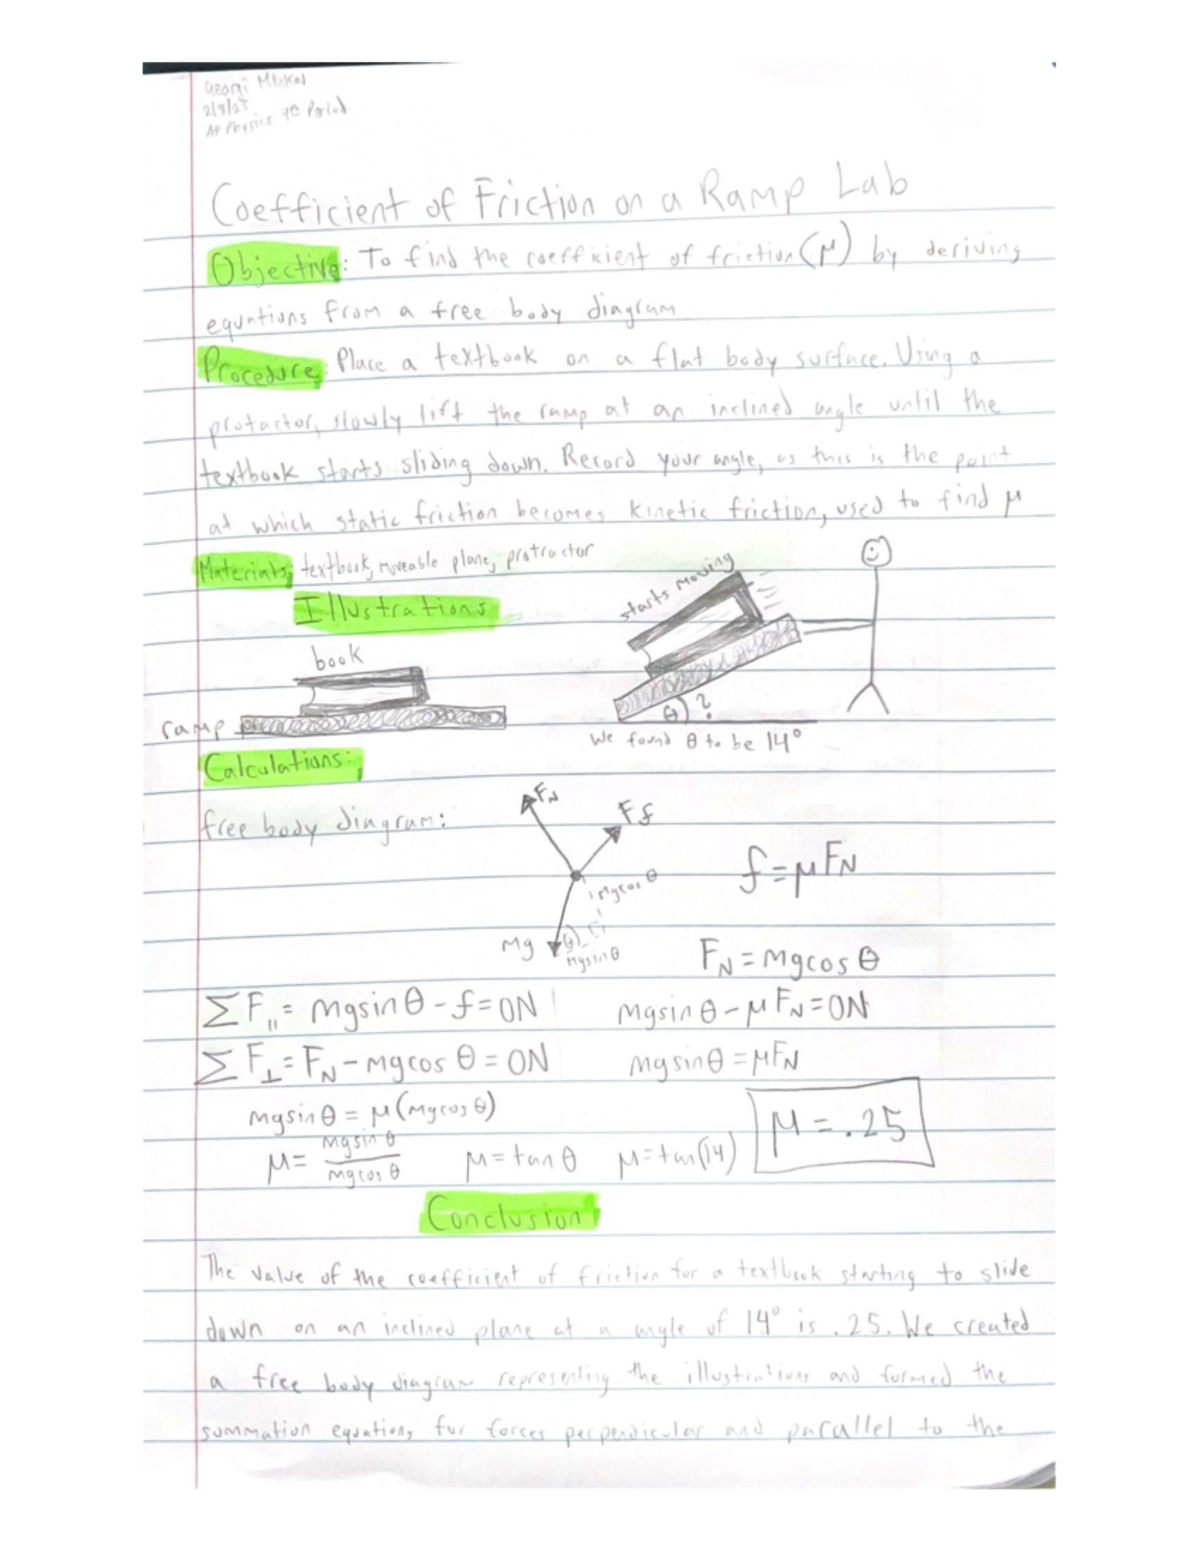 Georgi
2/8/23
AP Physics 4th Period
Coefficient of Friction on a Ramp Lab
Objective: To find the coefficient of friction (μ) by deriving
equations from a free body diagram
Procedure: Place a textbook on a flat body surface. Using a
protactor, slowly lift the ramp at an inclined angle until the
textbook starts sliding down. Record your angle, as this is the point
at which static friction becomes kinetic friction, used to find μ
Materials: textbook, moveable plane, protractor
Illustrations
starts moving
book
ramp
θ ?
We found θ to be 14°
Calculations:
free body diagram:
FN
Ff
mgcos θ
f=μFN
Mg θ
mgsinθ
FN = mgcos θ
ΣF|| = mgsinθ - f = 0N
mgsinθ - μFN = 0N
ΣF⊥ = FN - mgcos θ = 0N
mgsinθ = μFN
mgsinθ = μ(mgcosθ)
μ = mgsinθ / mgcosθ
μ = tan θ
μ = tan(14)
μ = .25
Conclusion
The value of the coefficient of friction for a textbook starting to slide
down on an inclined plane at a angle of 14° is .25. We created
a free body diagram representing the illustrations and formed the
summation equations for forces perpendicular and parallel to the